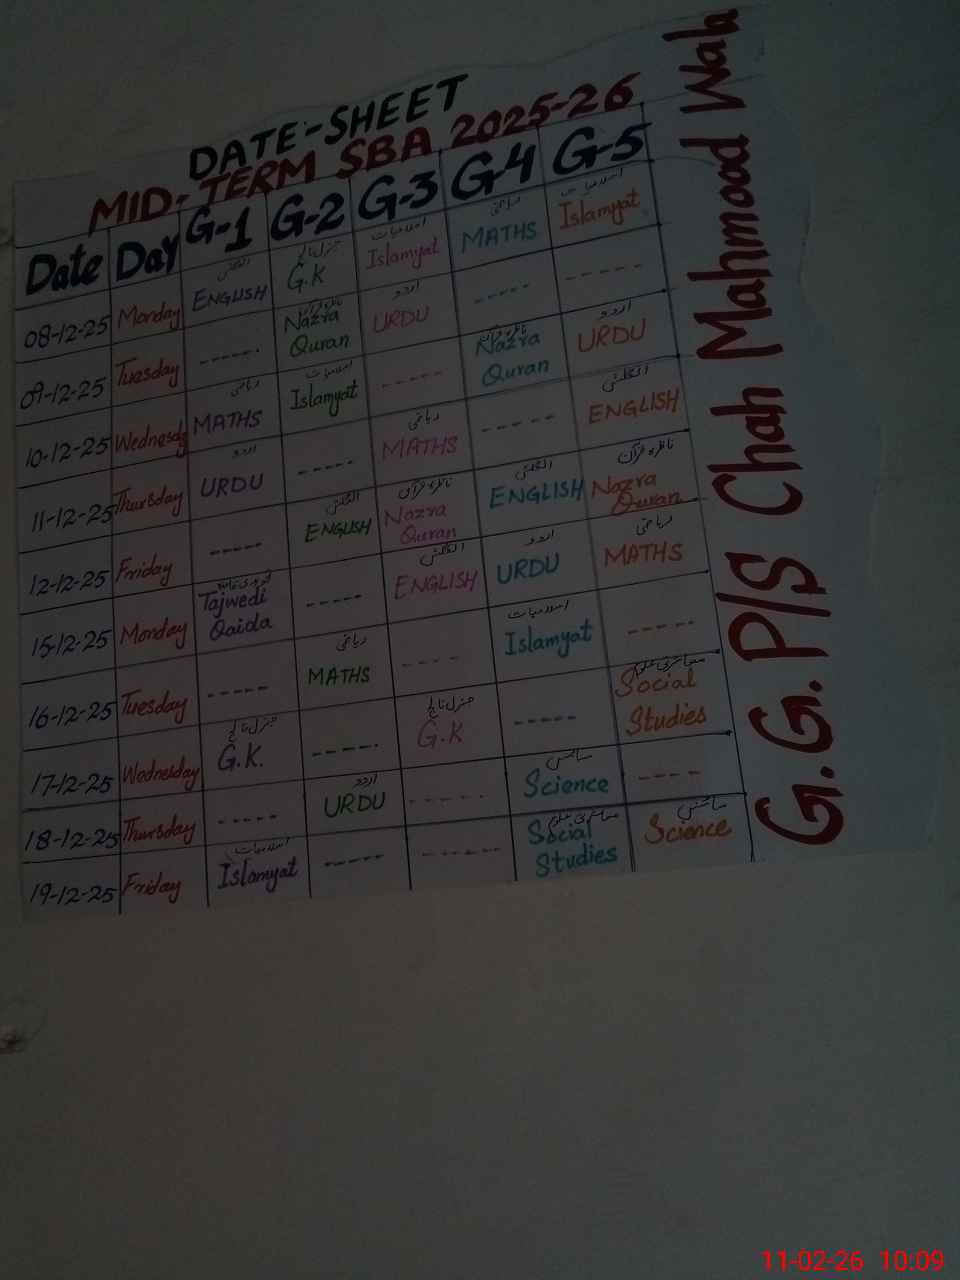 DATE-SHEET
MID-TERM SBA 2025-26
Date Day G-1 G-2 G-3 G-4 G-5
انگلش جنرل نالج اسلامیات ریاضی اسلامیات
08-12-25 Monday ENGLISH G.K Islamyat MATHS Islamyat
ناظرہ قرآن اردو
09-12-25 Tuesday ----- Nazra Quran URDU ----- ------
ریاضی اسلامیات ناظرہ قرآن اردو
10-12-25 Wednesday MATHS Islamyat ----- Nazra Quran URDU
اردو ریاضی انگلش
11-12-25 Thursday URDU ----- MATHS ----- ENGLISH
انگلش ناظرہ قرآن انگلش ناظرہ قرآن
12-12-25 Friday ----- ENGLISH Nazra Quran ENGLISH Nazra Quran
انگلش اردو ریاضی
15-12-25 Monday Tajwedi Qaida ---- ENGLISH URDU MATHS
ریاضی اسلامیات
16-12-25 Tuesday ----- MATHS ---- Islamyat -----
جنرل نالج جنرل نالج معاشرتی علوم
17-12-25 Wednesday G.K. ----- G.K ----- Social Studies
اردو سائنس
18-12-25 Thursday ----- URDU ----- Science ----
اسلامیات معاشرتی علوم سائنس
19-12-25 Friday Islamyat ----- ------ Social Studies Science
G.G.P/S Chah Mahmood Wala
11-02-26 10:09